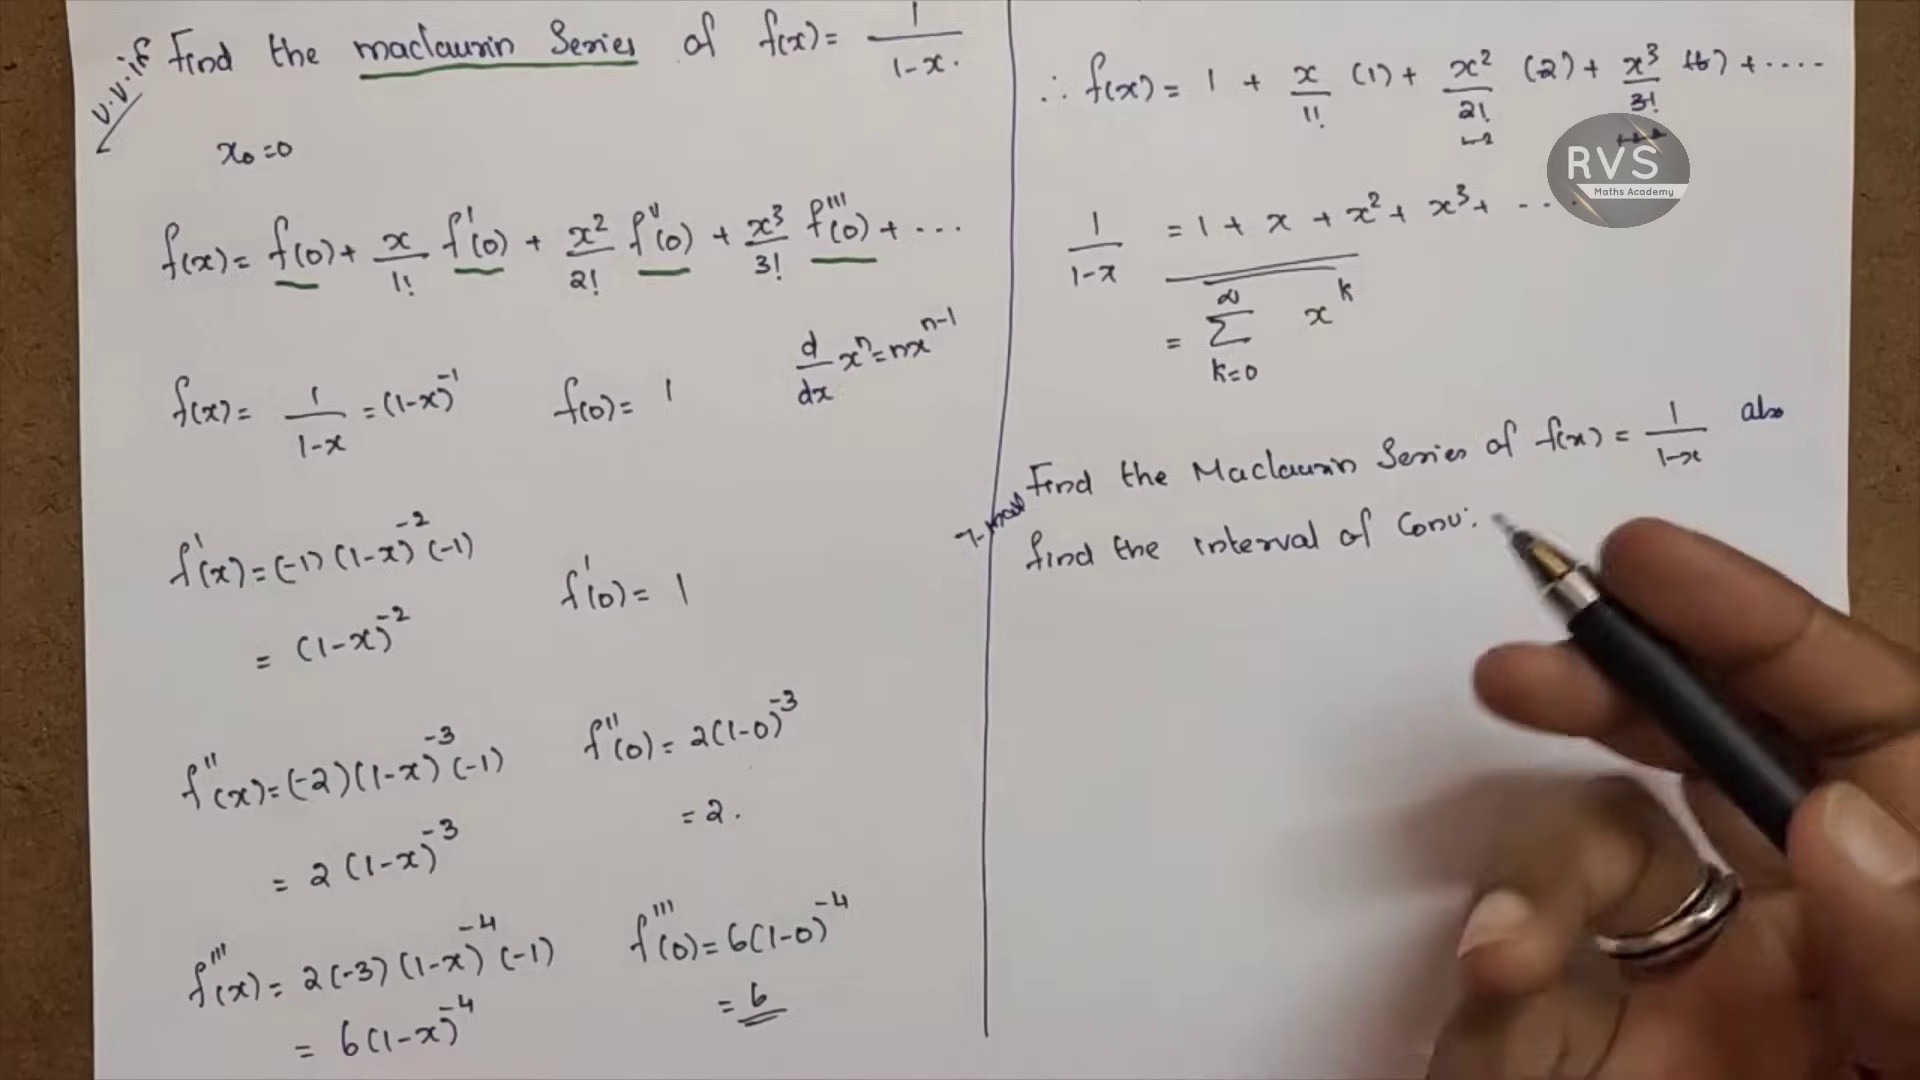 v.v.if Find the maclaurin Series of f(x) = 1/(1-x).
x₀=0
f(x)= f(0)+ x/1! f'(0) + x²/2! f''(0) + x³/3! f'''(0) + ...
f(x)= 1/(1-x) = (1-x)⁻¹ f(0)= 1 d/dx xⁿ=nxⁿ⁻¹
f'(x)=(-1)(1-x)⁻²(-1)
= (1-x)⁻² f'(0)= 1
f''(x)=(-2)(1-x)⁻³(-1) f''(0)=2(1-0)⁻³
= 2(1-x)⁻³ =2.
f'''(x)= 2(-3)(1-x)⁻⁴(-1) f'''(0)=6(1-0)⁻⁴
= 6(1-x)⁻⁴ =6
∴ f(x)= 1 + x/1! (1)+ x²/2! (2)+ x³/3! (6)+....
RVS
Maths Academy
1/(1-x) = 1+ x + x²+ x³+ ...
= ∞ Σ k=0 xᵏ
Find the Maclaurin Series of f(x) = 1/(1-x) also
find the interval of Conv.